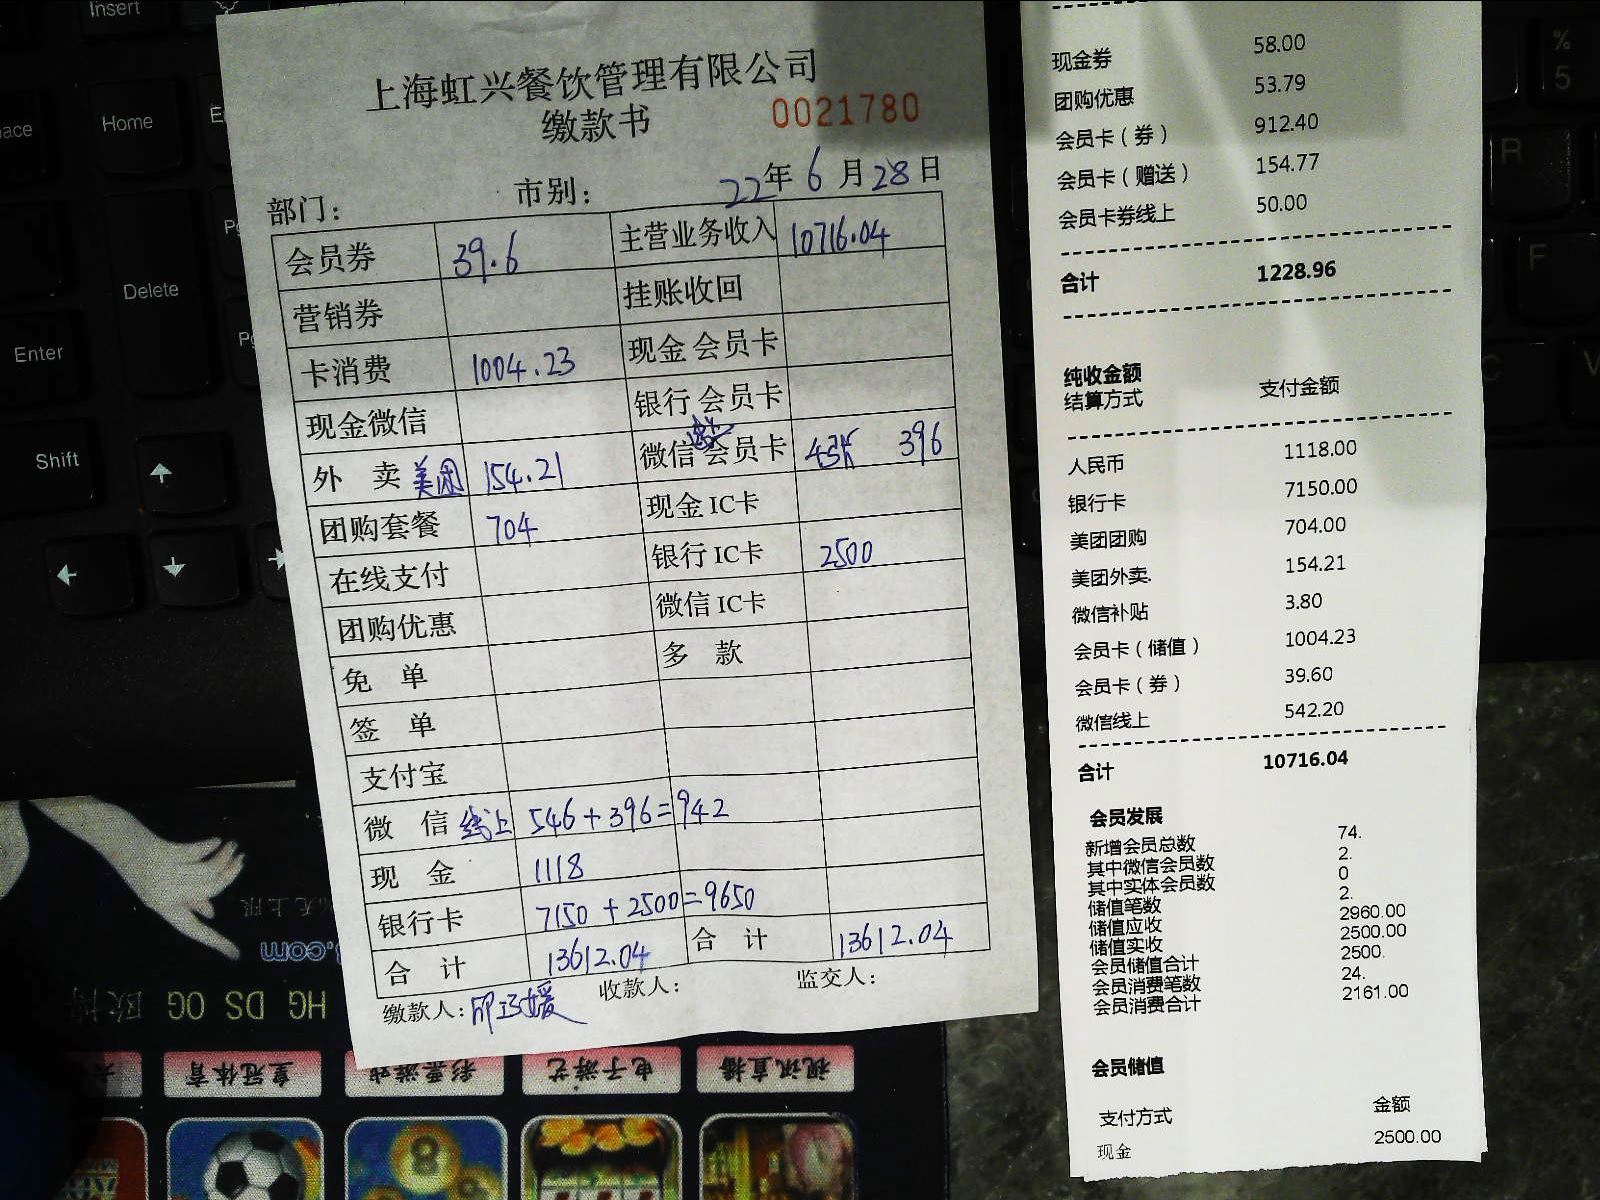 Insert
Home
Delete
Enter
Shift
%
5
R
F
C
上海虹兴餐饮管理有限公司
缴款书 0021780
部门： 市别： 22年6月28日
会员券 39.6 主营业务收入 10716.04
营销券 挂账收回
卡消费 1004.23 现金会员卡
现金微信 银行会员卡
外 卖 美团 154.21 微信会员卡 4张 396
团购套餐 704 现金IC卡
在线支付 银行IC卡 2500
团购优惠 微信IC卡
免 单 多 款
签 单
支付宝
微 信 线上 546+396=942
现 金 1118
银行卡 7150+2500=9650
合 计 13612.04 合 计 13612.04
缴款人： 收款人： 监交人：
现金券 58.00
团购优惠 53.79
会员卡（券） 912.40
会员卡（赠送） 154.77
会员卡券线上 50.00
合计 1228.96
纯收金额
结算方式 支付金额
人民币 1118.00
银行卡 7150.00
美团团购 704.00
美团外卖. 154.21
微信补贴 3.80
会员卡（储值） 1004.23
会员卡（券） 39.60
微信线上 542.20
合计 10716.04
会员发展
新增会员总数 74.
其中微信会员数 2.
其中实体会员数 0
储值笔数 2.
储值应收 2960.00
储值实收 2500.00
会员储值合计 2500.
会员消费笔数 24.
会员消费合计 2161.00
会员储值
支付方式 金额
现金 2500.00
HG DS OG
皇冠体育 彩票游戏 电子游艺 视讯直播